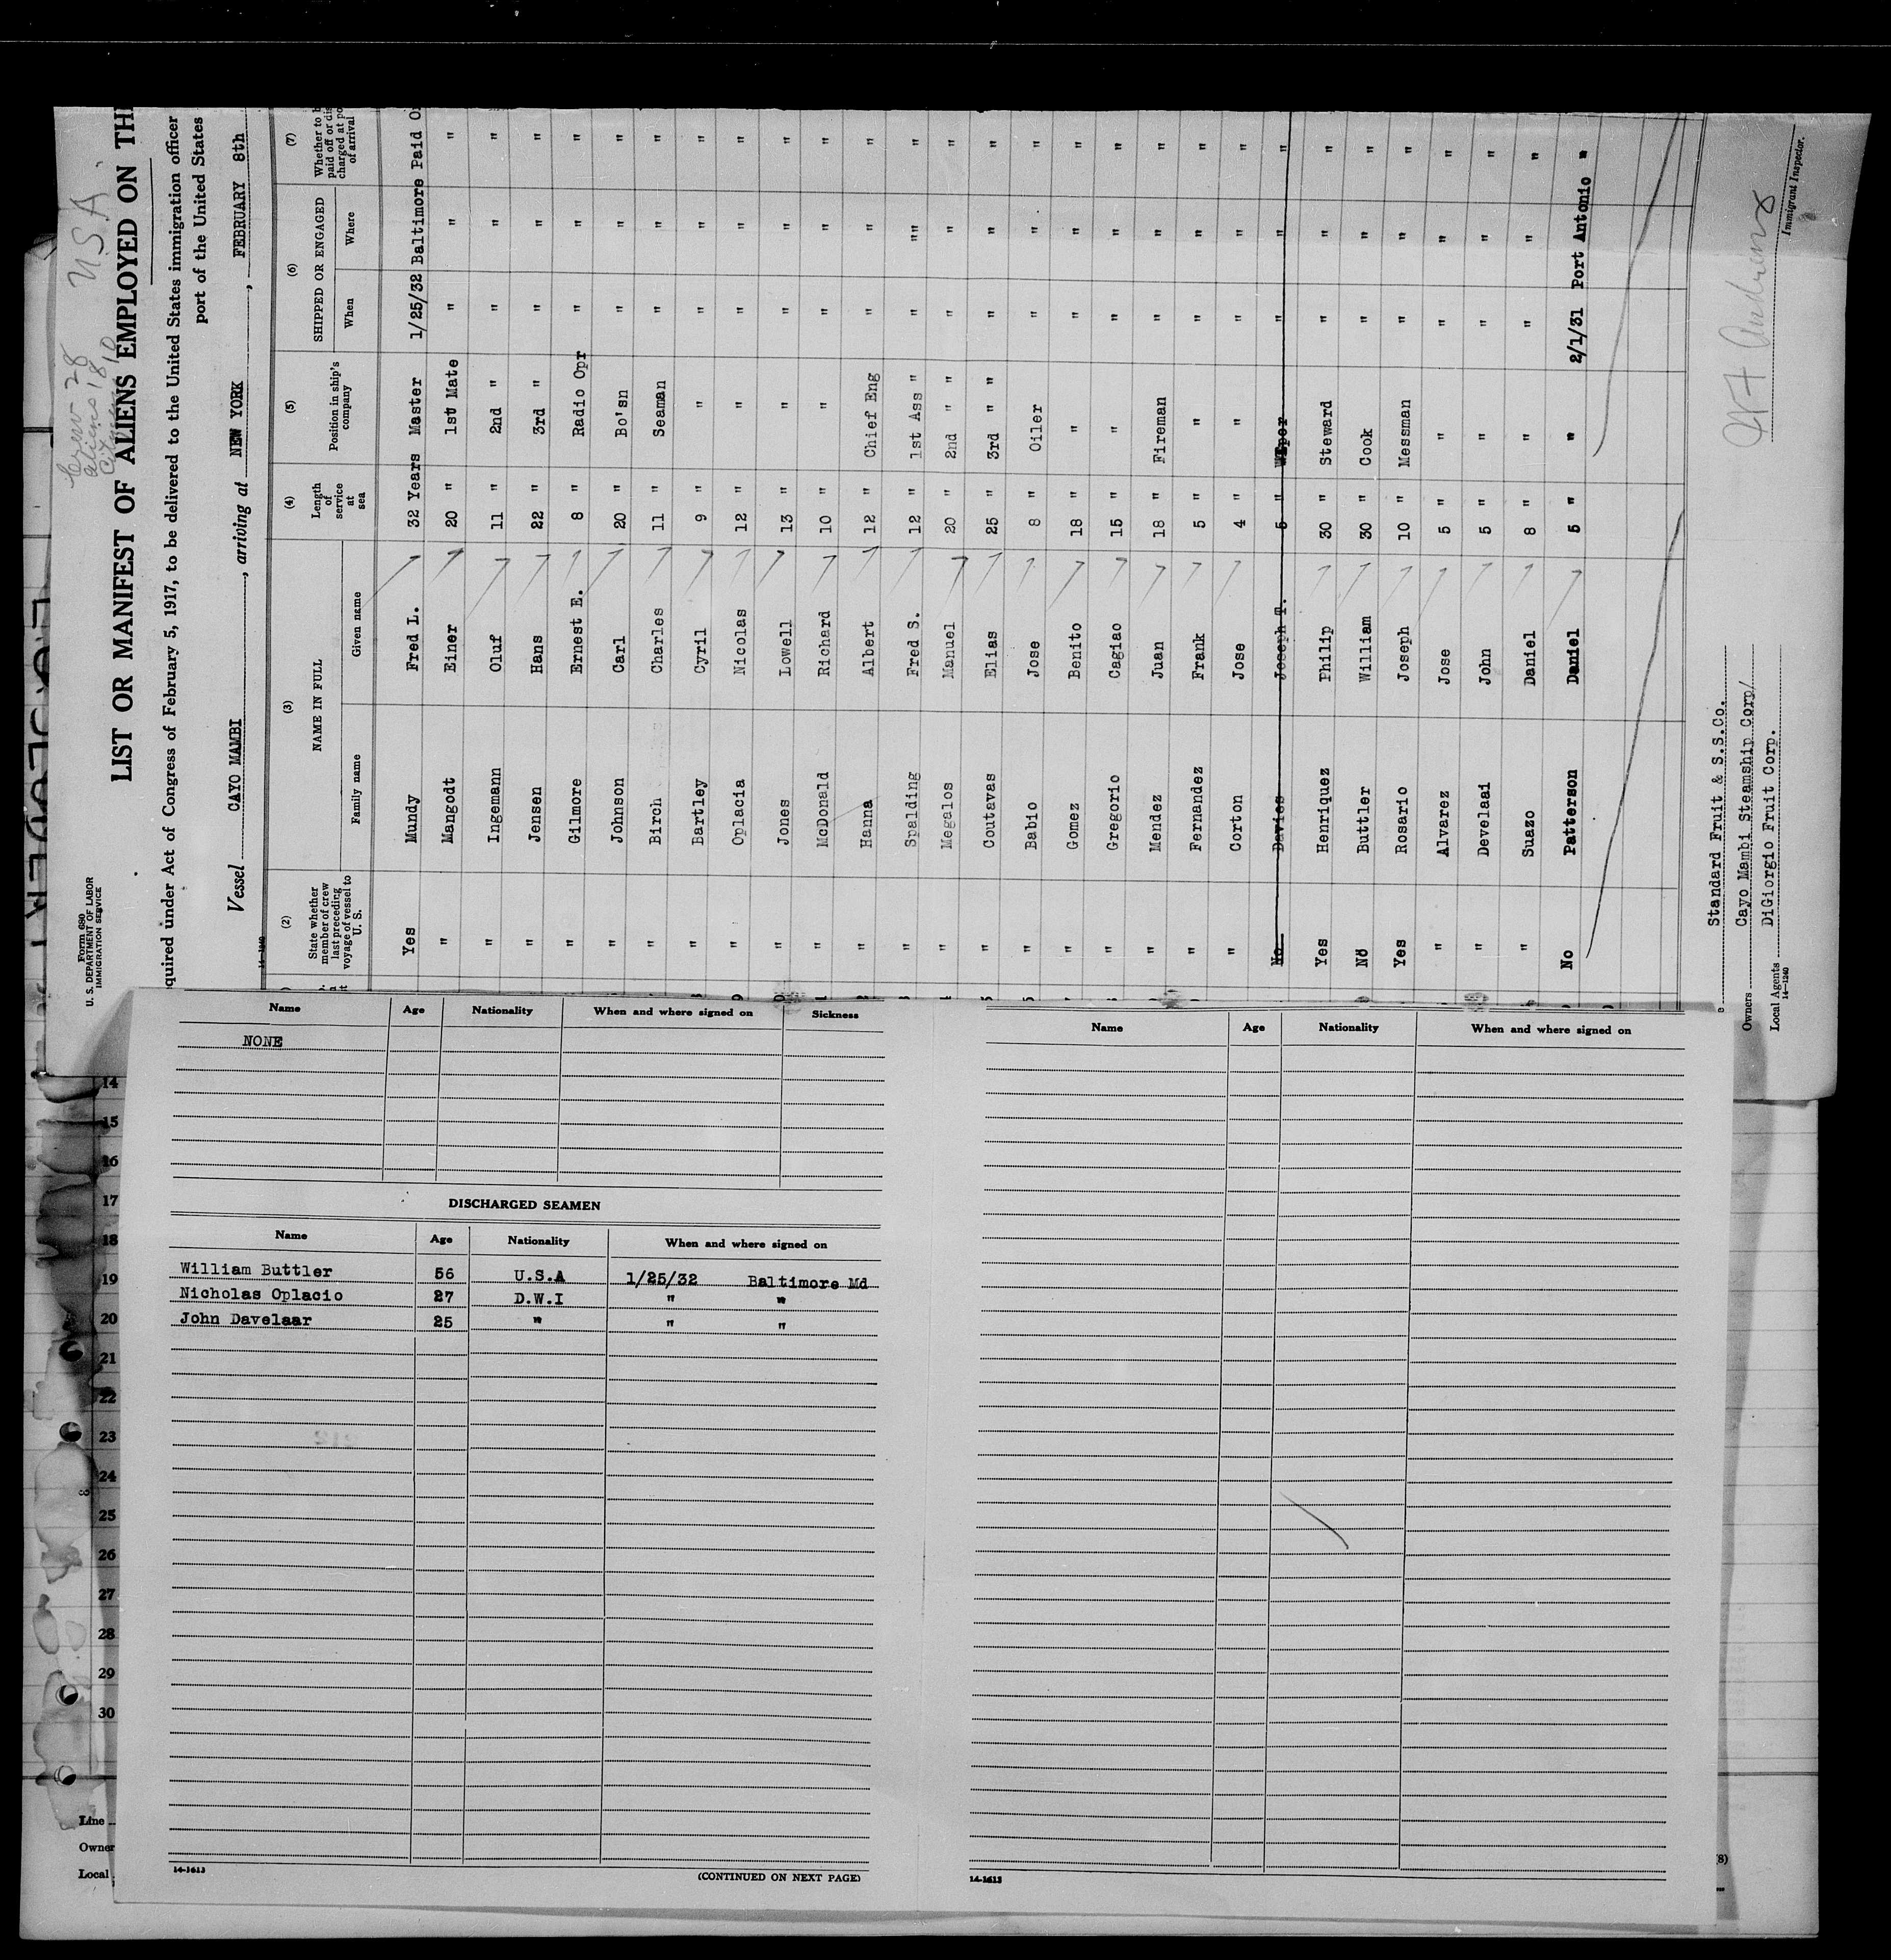 Form 680
U. S. DEPARTMENT OF LABOR
IMMIGRATION SERVICE
Crew - 28
Aliens 18
Citizens 10
U.S.A.
LIST OR MANIFEST OF ALIENS EMPLOYED ON TH
quired under Act of Congress of February 5, 1917, to be delivered to the United States immigration officer
port of the United States
Vessel CAYO MAMBI, arriving at NEW YORK, FEBRUARY 8th
14-1240
(2) (3) (4) (5) (6) (7)
State whether member of crew last preceding voyage of vessel to U. S. NAME IN FULL Length of service at sea Position in ship's company SHIPPED OR ENGAGED Whether to b paid off or dis charged at po of arrival
Family name Given name When Where
Yes Mundy Fred L. 32 Years Master 1/25/32 Baltimore Paid O
" Mangodt Einer 20 " 1st Mate " " "
" Ingemann Oluf 11 " 2nd " " " "
" Jensen Hans 22 " 3rd " " " "
" Gilmore Ernest E. 8 " Radio Opr " " "
" Johnson Carl 20 " Bo'sn " " "
" Birch Charles 11 " Seaman " " "
" Bartley Cyril 9 " " " " "
" Oplacia Nicolas 12 " " " " "
" Jones Lowell 13 " " " " "
" McDonald Richard 10 " " " " "
" Hanna Albert 12 " Chief Eng " " "
" Spalding Fred S. 12 " 1st Ass " " "" "
" Megalos Manuel 20 " 2nd " " " " "
" Coutavas Elias 25 " 3rd " " " " "
" Babio Jose 8 " Oiler " " "
" Gomez Benito 18 " " " " "
" Gregorio Cagiao 15 " " " " "
" Mendez Juan 18 " Fireman " " "
" Fernandez Frank 5 " " " " "
" Corton Jose 4 " " " " "
No Davies Joseph T. 5 " Wiper " " "
Yes Henriquez Philip 30 " Steward " " "
No Buttler William 30 " Cook " " "
Yes Rosario Joseph 10 " Messman " " "
" Alvarez Jose 5 " " " " "
" Develaai John 5 " " " " "
" Suazo Daniel 8 " " " " "
No Patterson Daniel 5 " " 2/1/31 Port Antonio "
Standard Fruit & S.S.Co.
Owners Cayo Mambi Steamship Corp/
Local Agents DiGiorgio Fruit Corp.
14-1240
Immigrant Inspector.
Name Age Nationality When and where signed on Sickness
NONE
DISCHARGED SEAMEN
Name Age Nationality When and where signed on
William Buttler 56 U.S.A 1/25/32 Baltimore Md
Nicholas Oplacio 27 D.W.I " "
John Davelaar 25 " " "
14-1613
(CONTINUED ON NEXT PAGE)
Name Age Nationality When and where signed on
14-1613
14
15
16
17
18
19
20
21
22
23
24
25
26
27
28
29
30
Line
Owner
Local
(8)